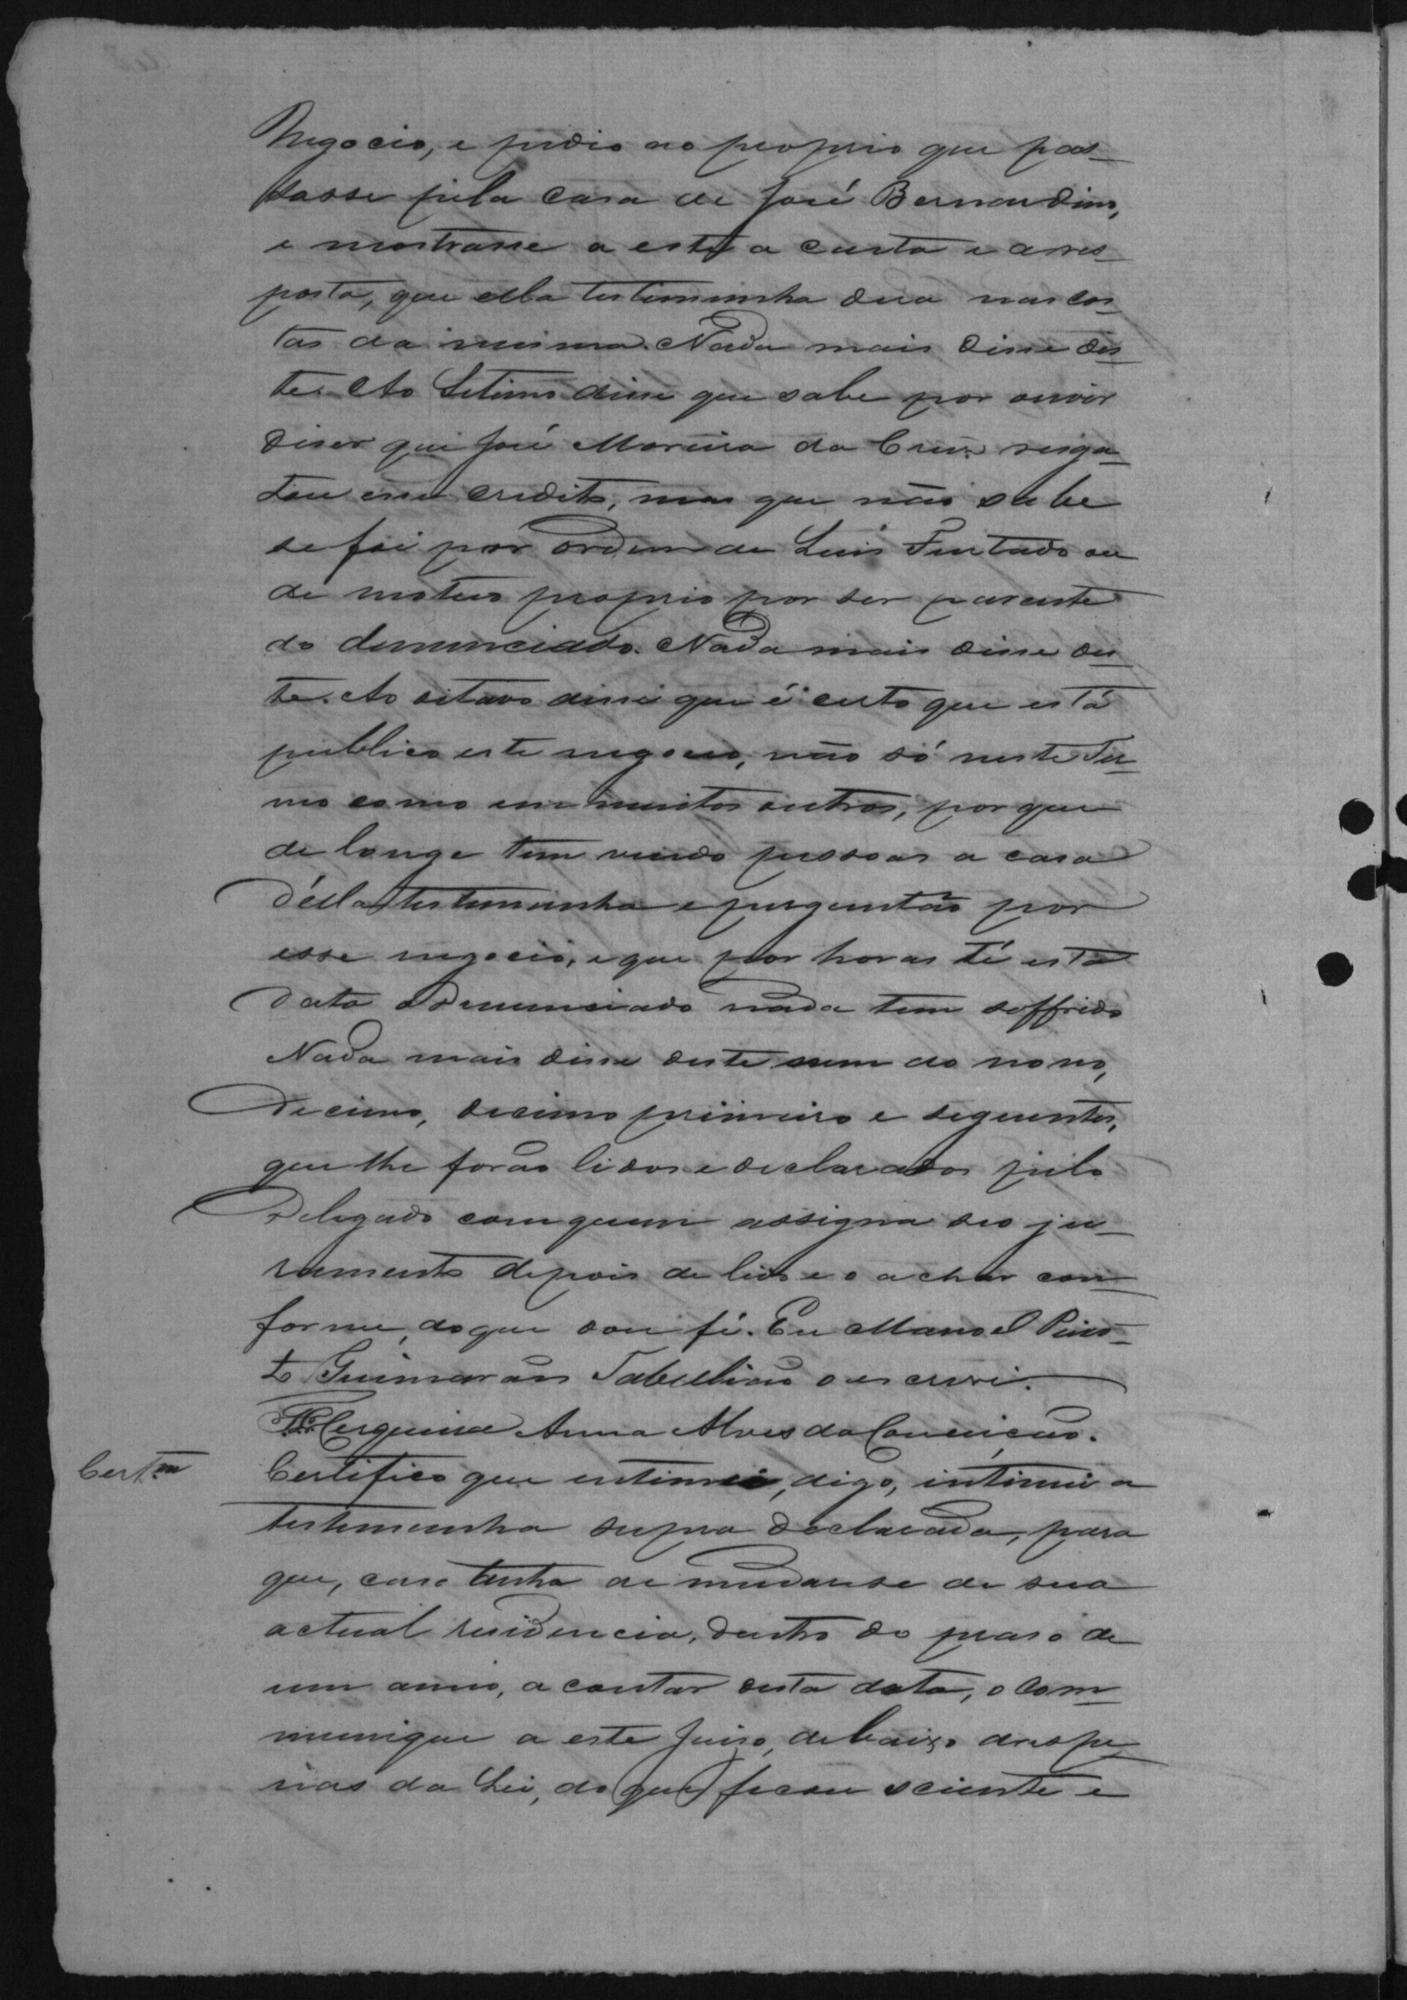 Negocio, e pedio ao proprio que pas-
sasse pela casa de José Bernardino,
e mostrasse a este a carta e a res-
posta, que ella testimunha dera nas cos-
tas da mesma. Nada mais disse des-
te. Ao Setimo disse que sabe por ouvir
diser que José Moreira da Cruz resga-
tou esse credito, mas que não sabe
se foi por ordem de Luis Furtado ou
de motus proprio por ser parente
do denunciado. Nada mais disse des-
te. Ao oitavo disse que é certo que está
publico este negocio, não só neste Ter-
mo como em muitos outros, por que
de longe tem vindo pessoas a casa
d'ella testemunha e perguntão por
esse negocio, e que por horas té esta
data o denunciado nada tem soffrido
Nada mais disse deste nem ao nono,
decimo, decimo primeiro e seguentes,
que lhe forão lidos e declarados pelo
Delegado com quem assigna seo ju-
ramento depois de lido e o achar con-
forme, do que dou fé. Eu Manoel Peixo-
to Guimarães Tabellião o escrevi.
Cerquina Anna Alves da Conceição.
Cert.m Certifico que entimei, digo, intimei a
testemunha supra declarada, para
que, caso tenha de mudarse de sua
actual residencia, dentro do praso de
um anno, a contar desta data, o com-
munique a este Juiso, debaixo das pe-
nas da Lei, do que ficou sciente e